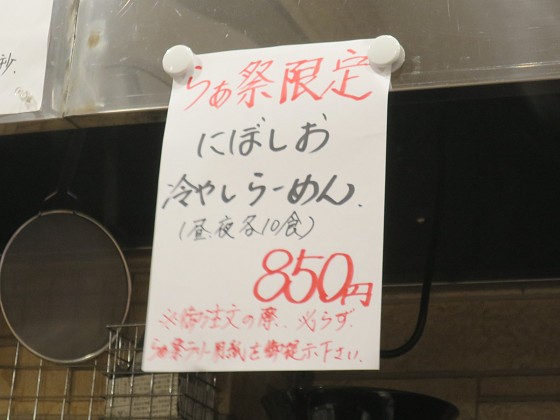 秒.
らぁ祭限定
にぼしお
冷やしらーめん.
(昼夜各10食)
850円
※御注文の際、必らず.
らぁ祭ラリー用紙を御提示下さい.